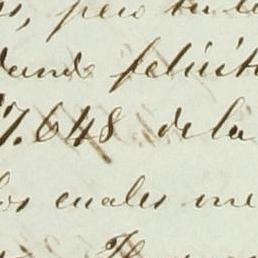 pero
dando felicit
7.648 de la
los cuales me